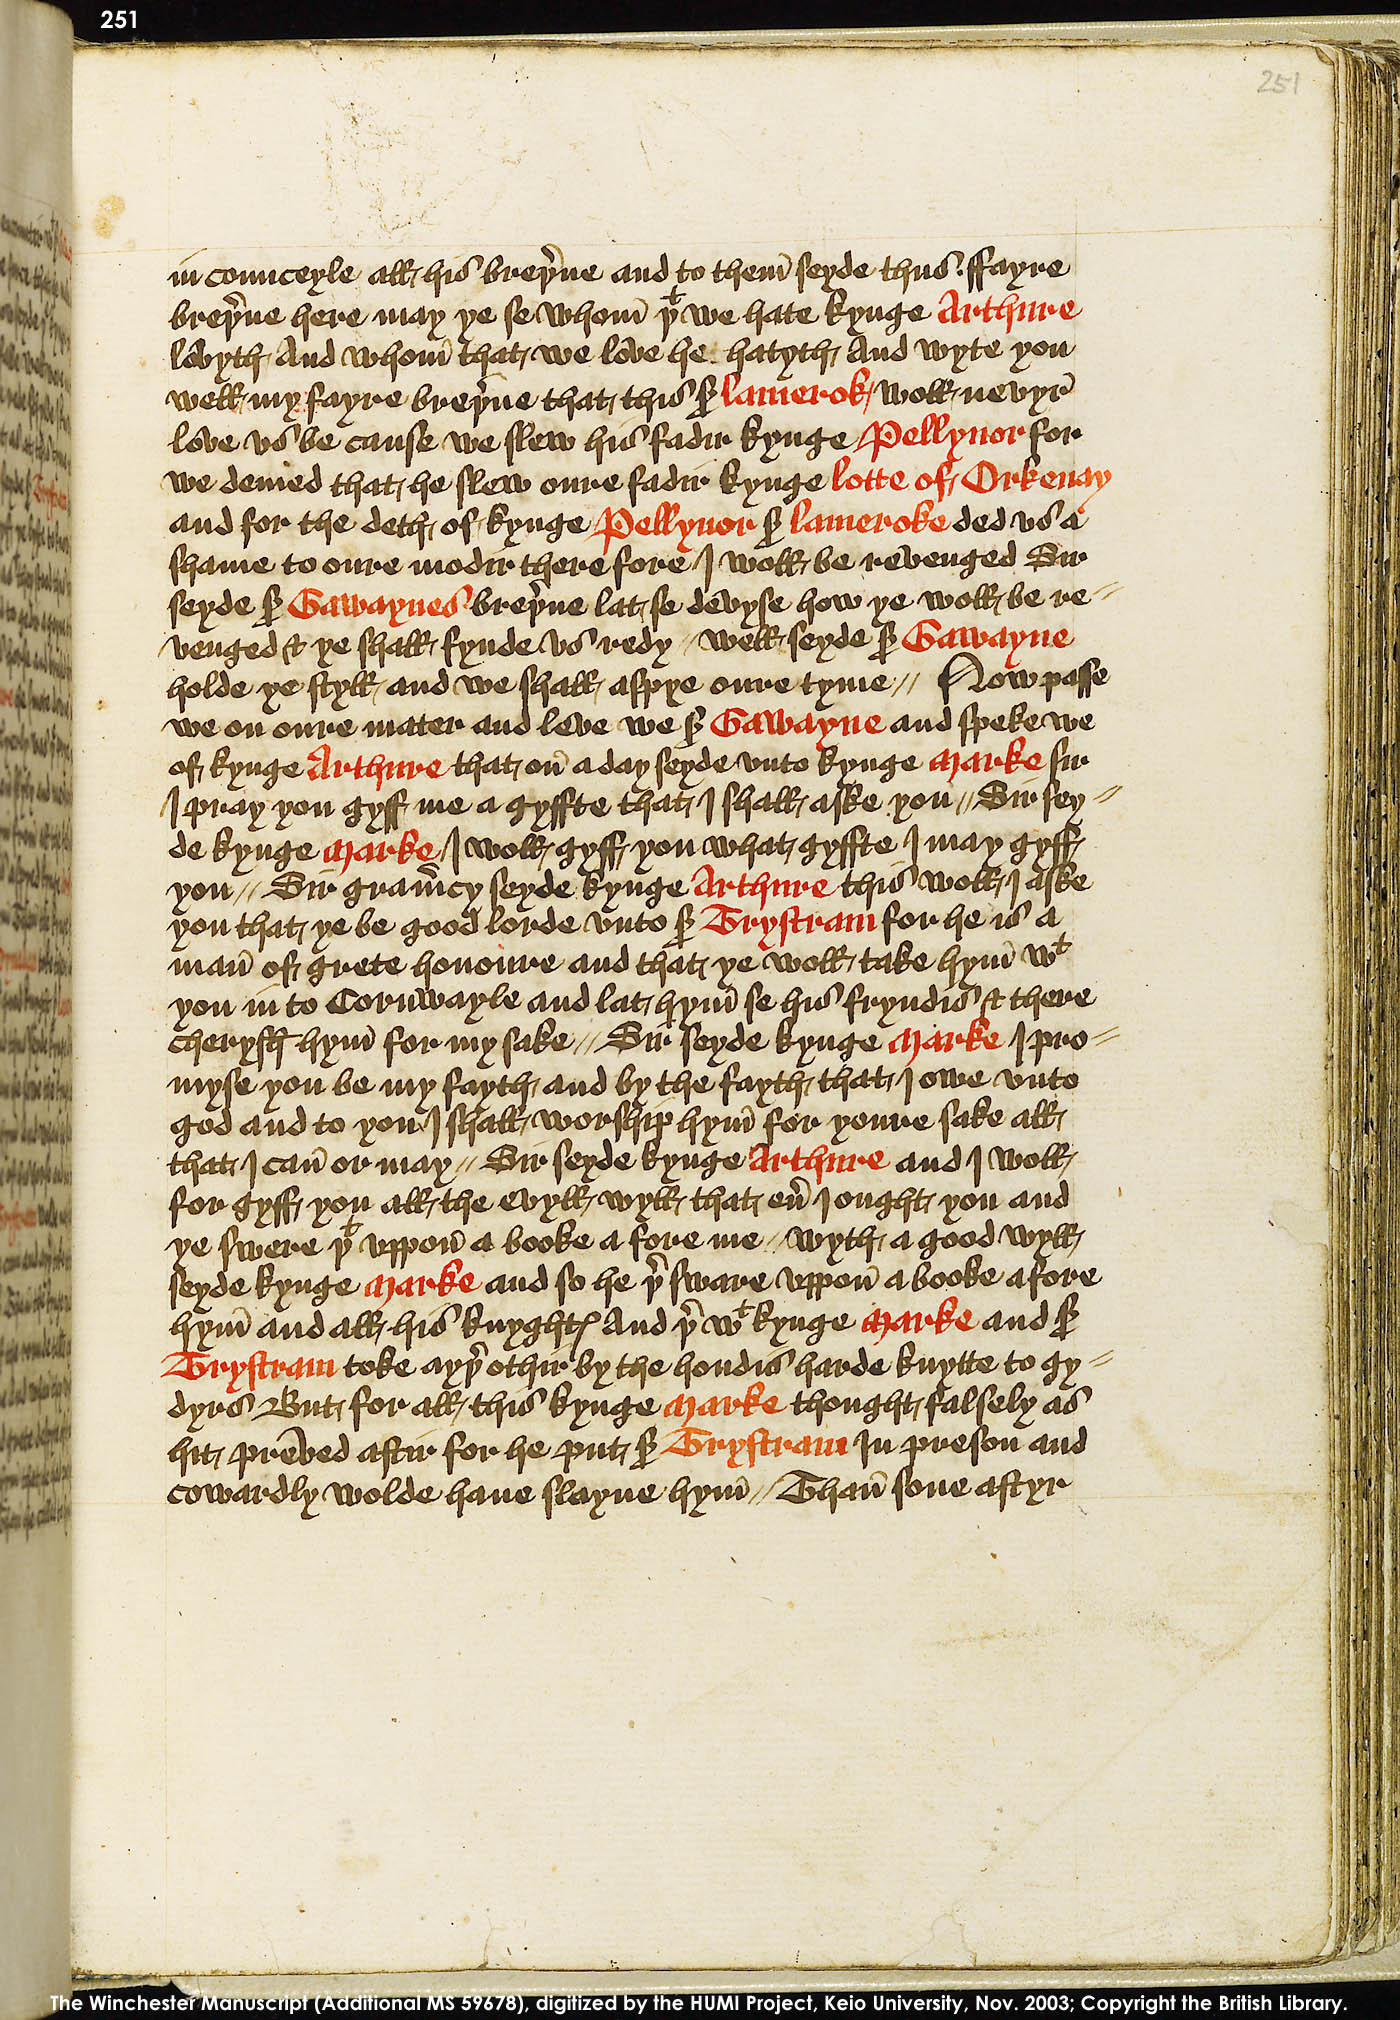 251
251
in counceyle all his breþ͛ne and to them̄ seyde thus. ffayre
breþ͛ne here may ye se whom̄ þͭ we hate kynge Arthure
lovyth And whom̄ that we love he hatyth And wyte you
well my fayre breþ͛ne that this s͛ lamerok woll nevyr̄
love vs be cause we slew his fadir kynge Pellynor for
we demed that he slew oure fadir kynge lotte of Orkenay
and for the deth of kynge Pellynor s͛ lameroke ded vs a
shame to oure modir there fore I woll be revenged Sir
seyde s͛ Gawaynes breþ͛ne lat se devyse how ye woll be re〃
venged & ye shall fynde vs redy // well seyde s͛ Gawayne
holde ye styll and we shall aspye oure tyme // Now passe
we on oure mater and leve we s͛ Gawayne and speke we
of kynge Arthure that on̄ a day seyde vnto kynge Marke sir
I pray you gyff me a gyffte that I shall aske you // Sir sey〃
de kynge Marke I woll gyff you what gyffte I may gyff
you // Sir gram͛cy seyde kynge Arthure this woll I aske
you that ye be good lorde vnto s͛ Trystram for he is a
man̄ of grete honoure and that ye woll take hym̄ wͭ
you in to Cornwayle and lat hym̄ se his fryndis & there
cherysh hym̄ for my sake // Sir seyde kynge Marke I pro〃
myse you be my fayth and by the fayth that I owe vnto
god and to you I shall worship hym̄ for youre sake all
that I can̄ or may // Sir seyde kynge Arthure and I woll
for gyff you all the evyll wyll that eu͛ I ought you and
ye swere þͭ vppon̄ a booke a fore me // wyth a good wyll
seyde kynge Marke and so he þ͛ sware vppon̄ a booke afore
hym̄ and all his knyghtꝭ And þ͛ wͭ kynge Marke and s͛
Trystram toke ayþ͛ othir by the hondis harde knytte to gy〃
dyrs But for all this kynge Marke thought falsely as
hit preved aftir for he put s͛ Trystram In preson and
cowardly wolde haue slayne hym̄ // Than̄ sone aftyr
The Winchester Manuscript (Additional MS 59678), digitized by the HUMI Project, Keio University, Nov. 2003; Copyright the British Library.